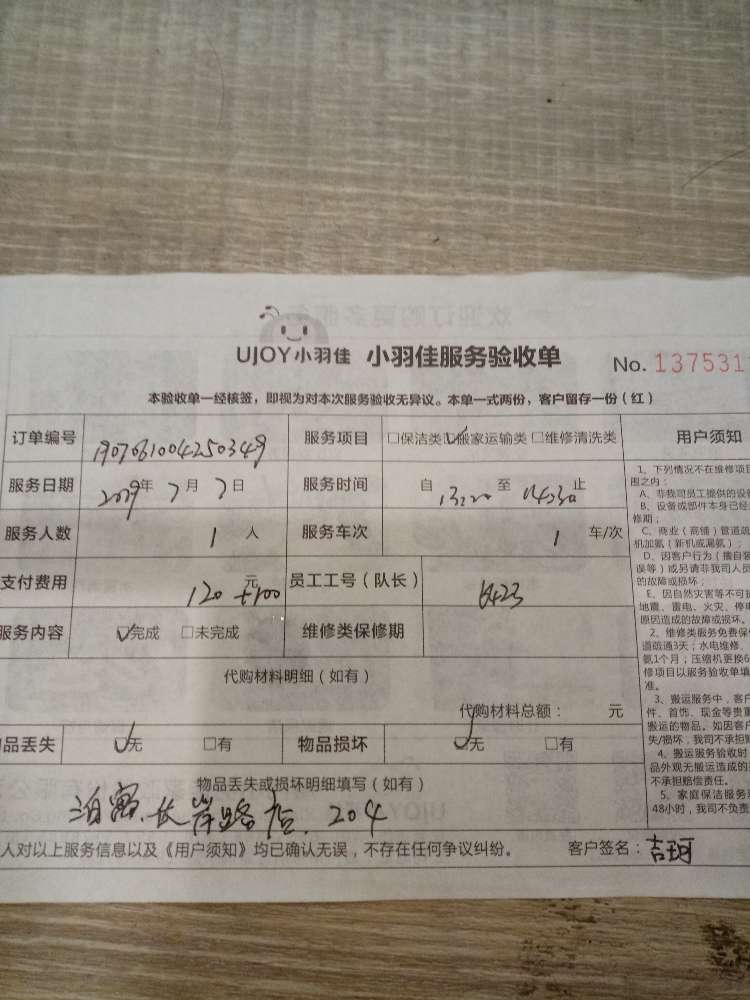 UJOY小羽佳 小羽佳服务验收单 No. 137531
本验收单一经核签，即视为对本次服务验收无异议。本单一式两份，客户留存一份（红）
订单编号 1907061004250349 服务项目 □保洁类 ☑搬家运输类 □维修清洗类 用户须知
服务日期 2019年7月7日 服务时间 自 13:20 至 14:30 止
服务人数 1 人 服务车次 1 车/次
支付费用 120+100 元 员工工号（队长） 6423
服务内容 ☑完成 □未完成 维修类保修期
代购材料明细（如有）
代购材料总额： 元
品丢失 ☑无 □有 物品损坏 ☑无 □有
物品丢失或损坏明细填写（如有）
泊寓 长岸路店 204
人对以上服务信息以及《用户须知》均已确认无误，不存在任何争议纠纷。 客户签名：吉珂
1、下列情况不在维修项目
围之内：
A、非我司员工提供的设备
B、设备或部件本身已经
修期；
C、商业（商铺）管道疏
机加氨（新机或漏氨）；
D、因客户行为（擅自装
误等）或另请非我司人员
的故障或损坏；
E、因自然灾害等不可抗
地震、雷电、火灾、停电
原因造成的故障或损坏。
2、维修类服务免费保
道疏通3天；水电维修、
氨1个月；压缩机更换6
修项目以服务验收单填
准。
3、搬运服务中，客户
件、首饰、现金等贵重
搬运的物品。如因客户
失/损坏，我司不承担赔
4、搬运服务验收时
品外观无搬运造成的
不承担赔偿责任。
5、家庭保洁服务
48小时，我司不负责